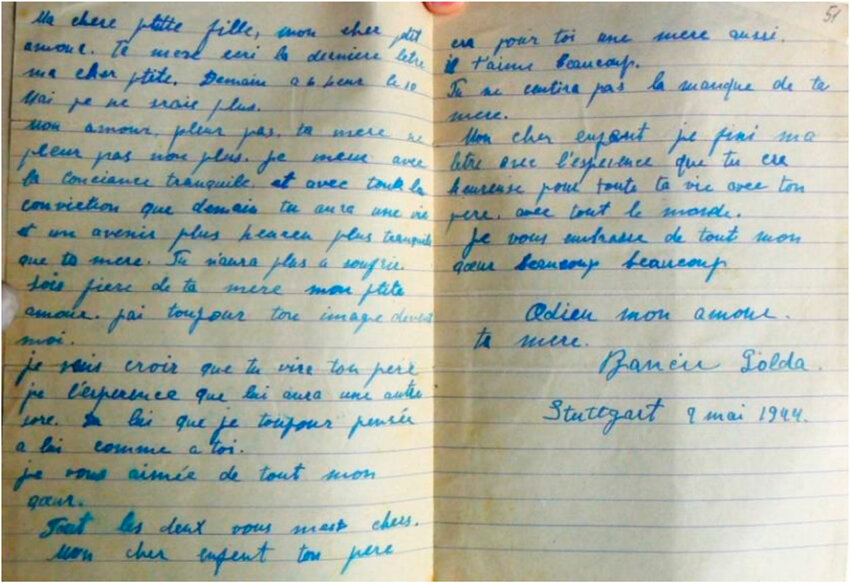 Ma chere ptite fille, mon cher ptit
amour. Ta mere ecri la derniere letre
ma cher ptite. Demain a 6 heur le 10
Mai je ne serais plus.
Mon amour, pleur pas, ta mere ne
pleur pas non plus. je meur avec
la conciance tranquile, et avec toute la
conviction que demain tu aura une vie
et un avenir plus heureu plus tranquile
que ta mere. Tu n'aura plus a soufrir.
Sois fiere de ta mere mon ptite
amour. j'ai toujour ton image devent
moi.
je vais croir que tu vira ton pere
je l'esperence que lui aura une autre
sore. lui que je toujour pensée
a lui comme a toi.
je vous aimée de tout mon
gœur.
Tout les deux vous chers.
Mon cher enfent ton pere
51
era pour toi une mere aussi.
il t'aime beaucoup.
Tu ne centira pas la manque de ta
mere.
Mon cher enfant je fini ma
letre avec l'esperence que tu era
heureuse pour toute ta vie avec ton
pere, avec tout le monde.
Je vous embrasse de tout mon
gœur beaucoup beaucoup
Adieu mon amour.
ta mere.
Bancic Golda.
Stuttgart 9 mai 1944.